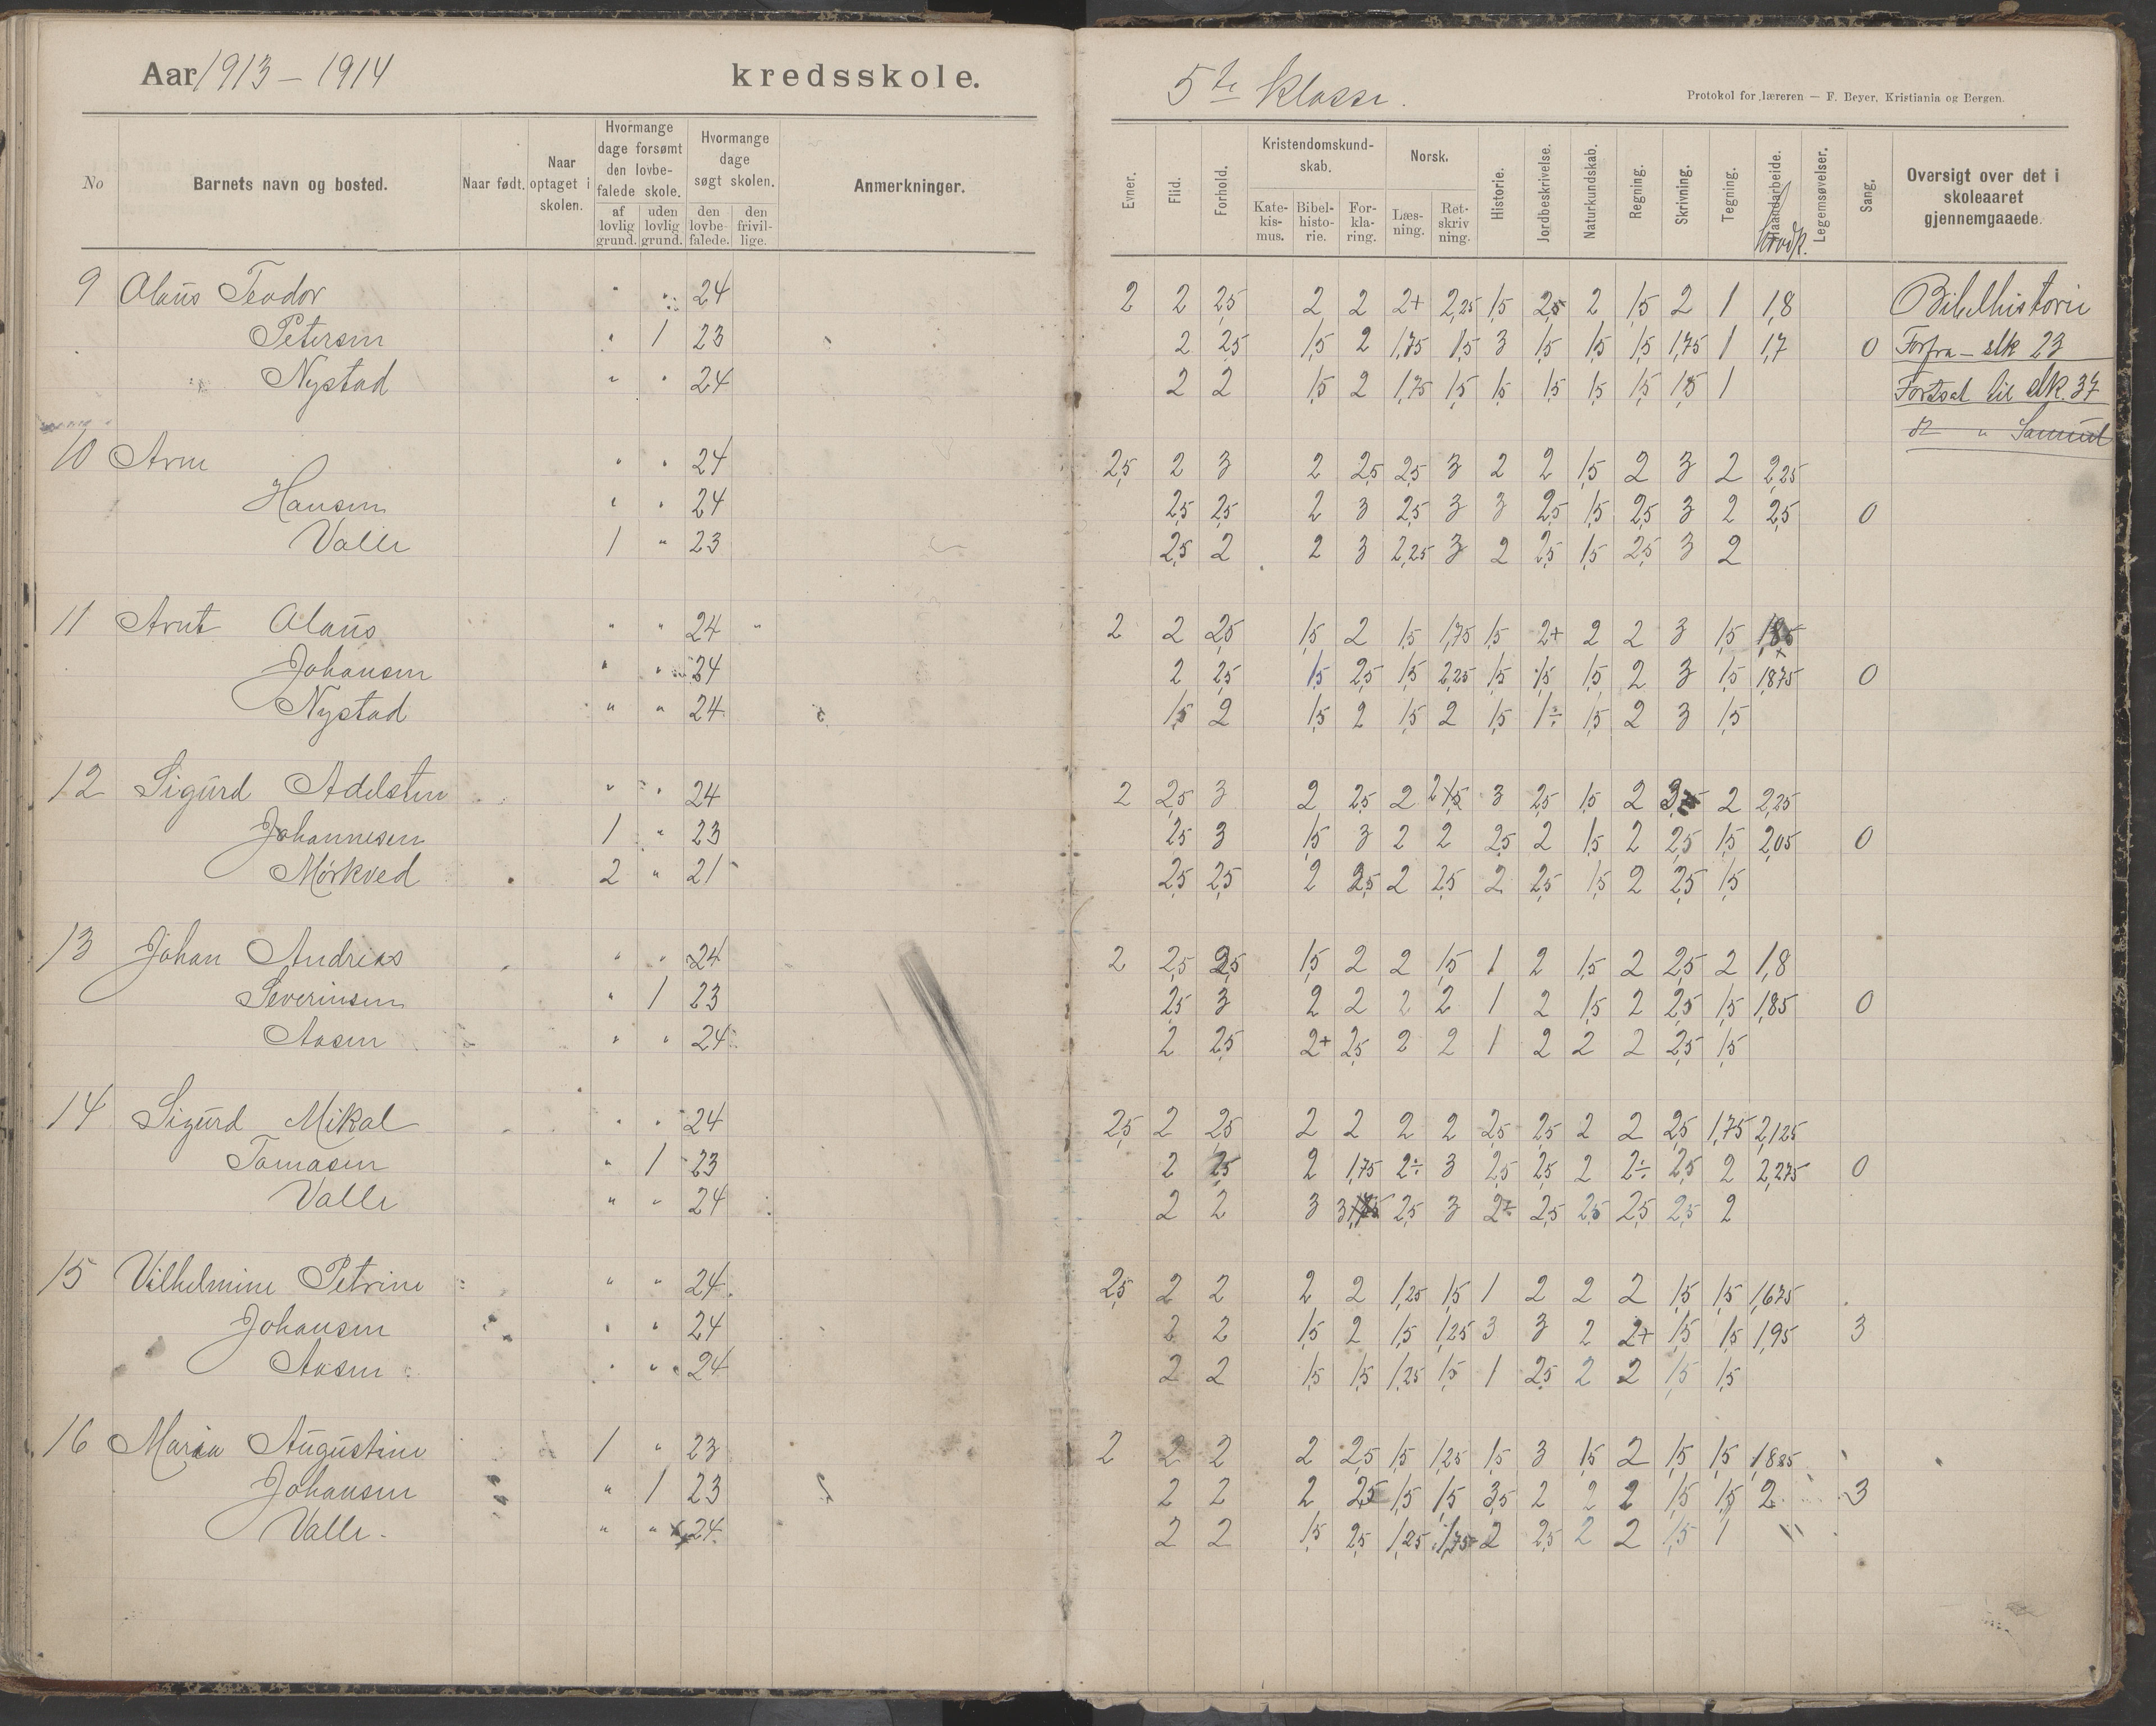 Aar 1913 - 1914 kredsskole.
No
Barnets navn og bosted.
Naar født.
Naar optaget i skolen.
Hvormange dage forsømt den lovbefalede skole.
af lovlig grund.
uden lovlig grund.
Hvormange dage søgt skolen.
den lovbefalede.
den frivillige.
Anmerkninger.
9 Olaus Teodor " " 24
Petersen " 1 23
Nystad " " 24
10 Arne " " 24
Hansen " " 24
Valle 1 " 23
11 Arnt Olaus " " 24 "
Johansen " " 24
Nystad " " 24
12 Sigurd Adelsten " " 24
Johannesen 1 " 23
Mørkved 2 " 21
13 Johan Andreas " " 24
Severinsen " 1 23
Aasen " " 24
14 Sigurd Mikal " " 24
Tomasen " 1 23
Valle " " 24
15 Vilhelmine Petrine " " 24
Johansen " " 24
Aasen " " 24
16 Maria Augustine 1 " 23
Johansen " 1 23
Valle " " 24
5te Klasse.
Protokol for læreren — F. Beyer, Kristiania og Bergen.
Evner.
Flid.
Forhold.
Kristendomskundskab.
Katekismus.
Bibelhistorie.
Forklaring.
Norsk.
Læsning.
Retskrivning.
Historie.
Jordbeskrivelse.
Naturkundskab.
Regning.
Skrivning.
Tegning.
Haandarbeide.
Hovedk.
Legemsøvelser.
Sang.
Oversigt over det i skoleaaret gjennemgaaede.
2 2 2,5 2 2 2+ 2,25 1,5 2,5 2 1,5 2 1 1,8 Bibelhistorie
2 2,5 1,5 2 1,75 1,5 3 1,5 1,5 1,5 1,75 1 1,7 0 Forfra - stk 23
2 2 1,5 2 1,75 1,5 1,5 1,5 1,5 1,5 1,5 1 Fortsat til stk. 37
" Samuel
2,5 2 3 2 2,5 2,5 3 2 2 1,5 2 3 2 2,25
2,5 2,5 2 3 2,5 3 3 2,5 1,5 2,5 3 2 2,5 0
2,5 2 2 3 2,25 3 2 2,5 1,5 2,5 3 2
2 2 2,5 1,5 2 1,5 1,75 1,5 2+ 2 2 3 1,5 1,85
2 2,5 1,5 2,5 1,5 2,25 1,5 1,5 1,5 2 3 1,5 1,875 0
1,5 2 1,5 2 1,5 2 1,5 1÷ 1,5 2 3 1,5
2 2,5 3 2 2,5 2 2 3 2,5 1,5 2 3 2 2,25
2,5 3 1,5 3 2 2 2,5 2 1,5 2 2,5 1,5 2,05 0
2,5 2,5 2 2,5 2 2,5 2 2,5 1,5 2 2,5 1,5
2 2,5 2,5 1,5 2 2 1,5 1 2 1,5 2 2,5 2 1,8
2,5 3 2 2 2 2 1 2 1,5 2 2,5 1,5 1,85 0
2 2,5 2+ 2,5 2 2 1 2 2 2 2,5 1,5
2,5 2 2,5 2 2 2 2 2,5 2,5 2 2 2,5 1,75 2,125
2 2,5 2 1,75 2÷ 3 2,5 2,5 2 2÷ 2,5 2 2,275 0
2 2 3 3 2,5 3 2÷ 2,5 2,5 2,5 2,5 2
2,5 2 2 2 2 1,25 1,5 1 2 2 2 1,5 1,5 1,675
2 2 1,5 2 1,5 1,25 3 3 2 2+ 1,5 1,5 1,95 3
2 2 1,5 1,5 1,25 1,5 1 2,5 2 2 1,5 1,5
2 2 2 2 2,5 1,5 1,25 1,5 3 1,5 2 1,5 1,5 1,885
2 2 2 2,5 1,5 1,5 3,5 2 2 2 1,5 1,5 2 3
2 2 1,5 2,5 1,25 1,75 2 2,5 2 2 1,5 1